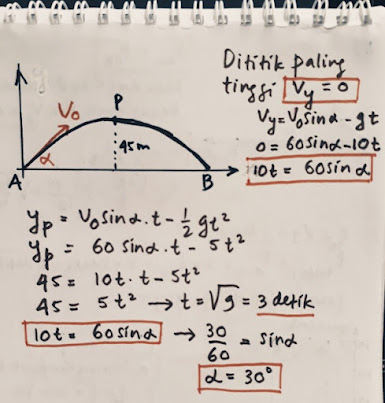 Dititik paling
tinggi Vy = 0
Vy = V₀ sin α - gt
0 = 60 sin α - 10t
10t = 60 sin α
y
V₀
α
P
45m
A
B
yp = V₀ sin α . t - ½ gt²
yp = 60 sin α . t - 5t²
45 = 10t . t - 5t²
45 = 5t² → t = √9 = 3 detik
10t = 60 sin α → 30/60 = sin α
α = 30°